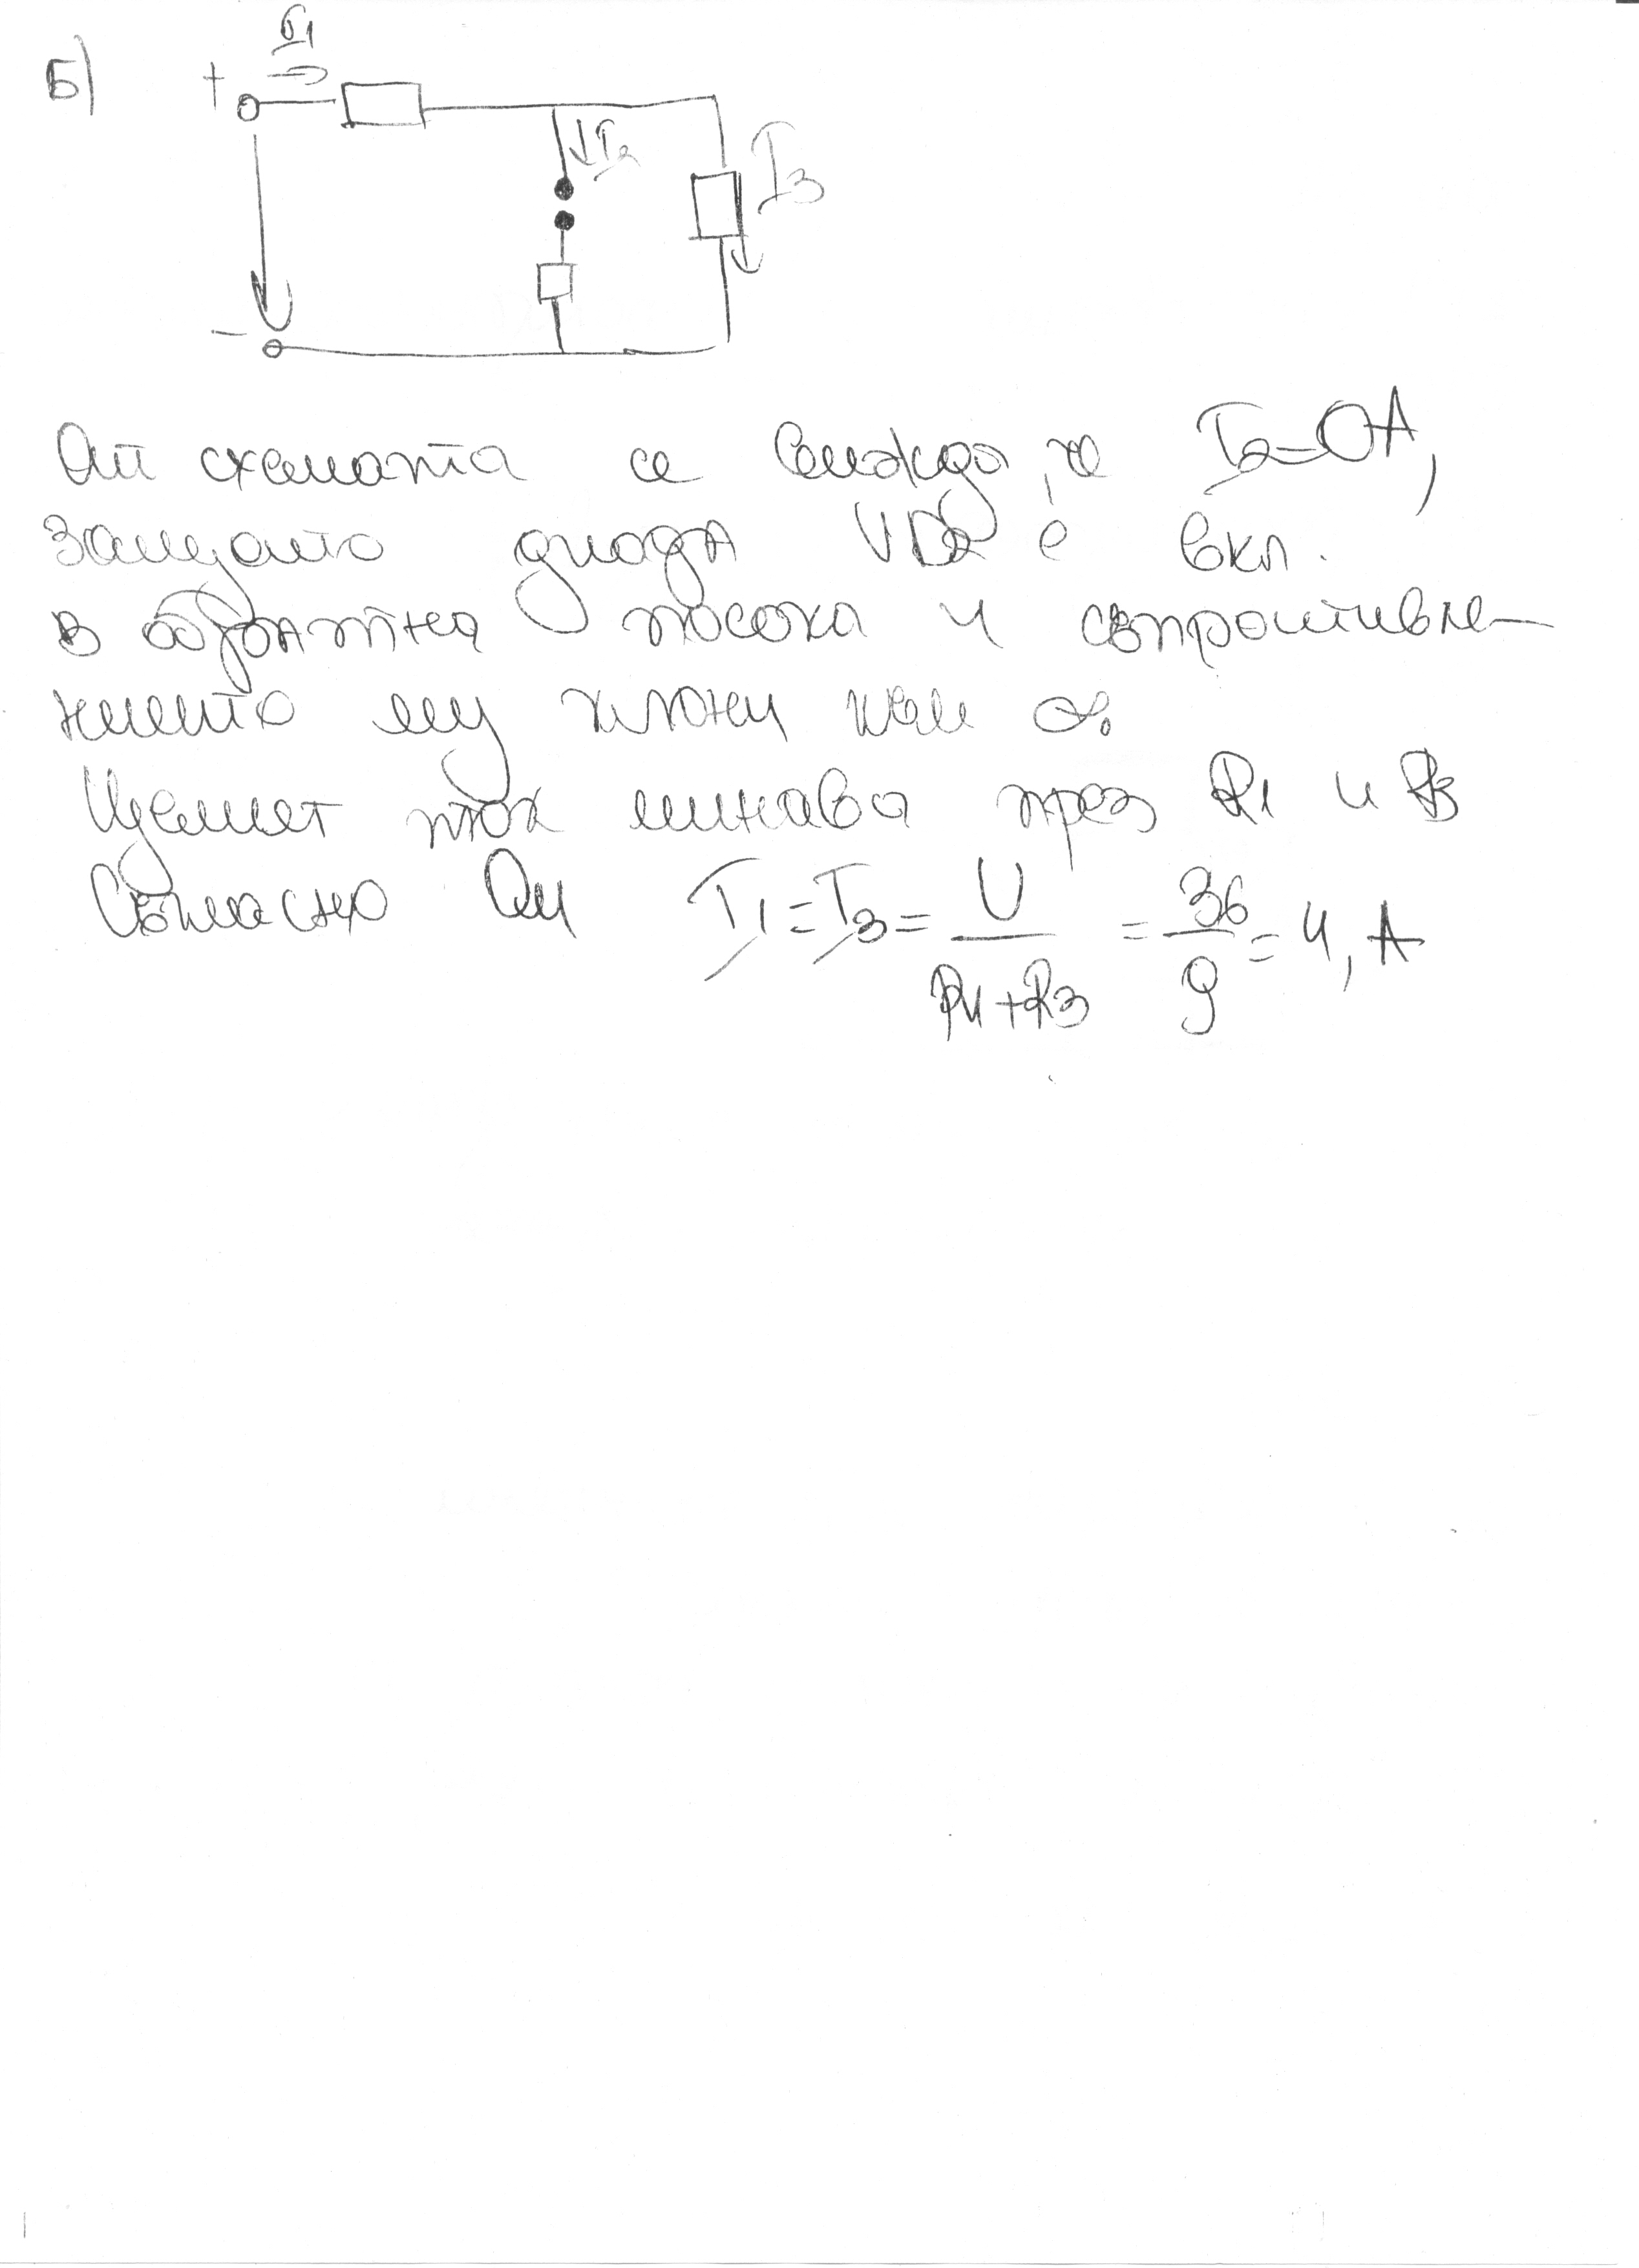 Б)
I1
+
I2
I3
-
От схемата се вижда, че I2=0A,
защото диодА VD2 е вкл.
в обрАтна посока и съпротивле-
нието му клони към ∞.
Целият ток минава през R1 и R3
Съгласно Ом I1=I3= U/R1+R3 = 36/9 = 4, A